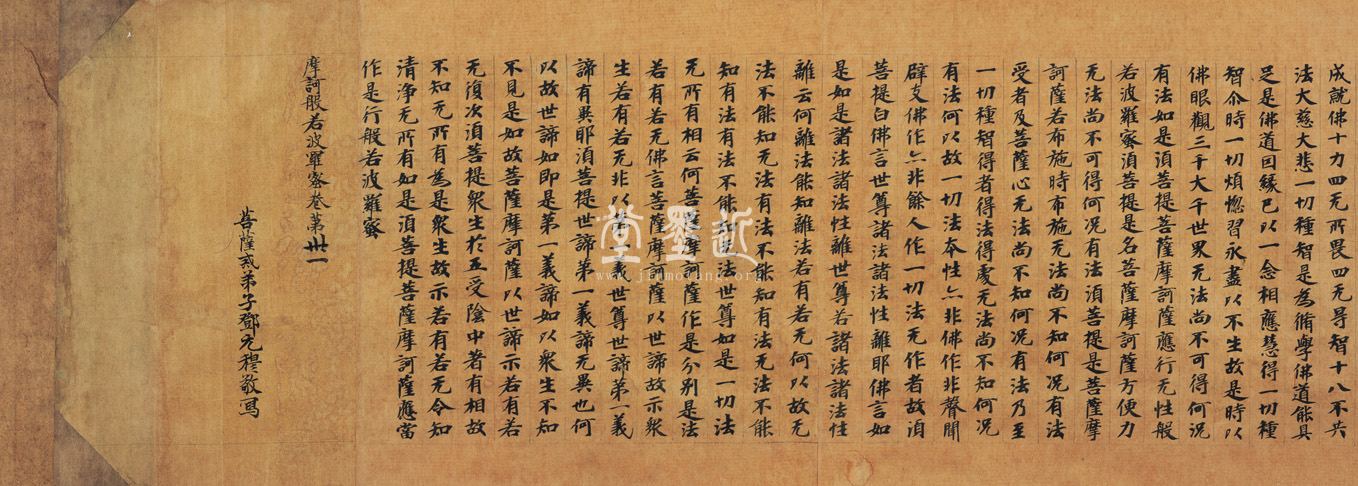 成就佛十力四无所畏四无㝵智十八不共
法大慈大悲一切種智是為脩學佛道能具
足是佛道因緣已以一念相應慧得一切種
智尒時一切煩惱習永盡以不生故是時以
佛眼觀三千大千世界无法尚不可得何況
有法如是湏菩提菩薩摩訶薩應行无性般
若波羅蜜湏菩提是名菩薩摩訶薩方便力
无法尚不可得何況有法湏菩提是菩薩摩
訶薩若布施時布施无法尚不知何況有法
受者及菩薩心无法尚不知何況有法乃至
一切種智得者得法得處无法尚不知何況
有法何以故一切法本性尒非佛作非聲聞
辟支佛作尒非餘人作一切法无作者故湏
菩提白佛言世尊諸法諸法性離耶佛言如
是如是諸法諸法性離世尊若諸法諸法性
離云何離法能知離法若有若无何以故无
法不能知无法有法不能知有法无法不能
知有法有法不能知无法世尊如是一切法
无所有相云何菩薩摩訶薩作是分别是法
若有若无佛言菩薩摩訶薩以世諦故示衆
生若有若无非以第一義世尊世諦第一義
諦有異耶湏菩提世諦第一義諦无異也何
以故世諦如即是第一義諦如以衆生不知
不見是如故菩薩摩訶薩以世諦示若有若
无復次湏菩提衆生於五受陰中著有相故
不知无所有為是衆生故示若有若无令知
清净无所有如是湏菩提菩薩摩訶薩應當
作是行般若波羅蜜
摩訶般若波羅蜜卷第卅一
菩薩戒弟子鄧元穆敬寫
近墨堂
www.jinmotang.org